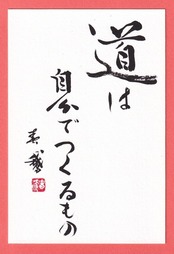 道は
自分でつくるもの